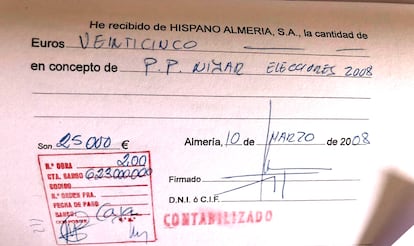 He recibido de HISPANO ALMERIA, S.A., la cantidad de
Euros VEINTICINCO
en concepto de P.P. NIJAR ELECCIONES 2008
Son 25000 € Almería, 10 de MARZO de 2008
N.º OBRA 2,00
CTA. CARGO 623000000
CODIGO
N.º ORDEN FRA.
FECHA DE PAGO
BANCO Caja
Firmado
D.N.I. ó C.I.F.
CONTABILIZADO